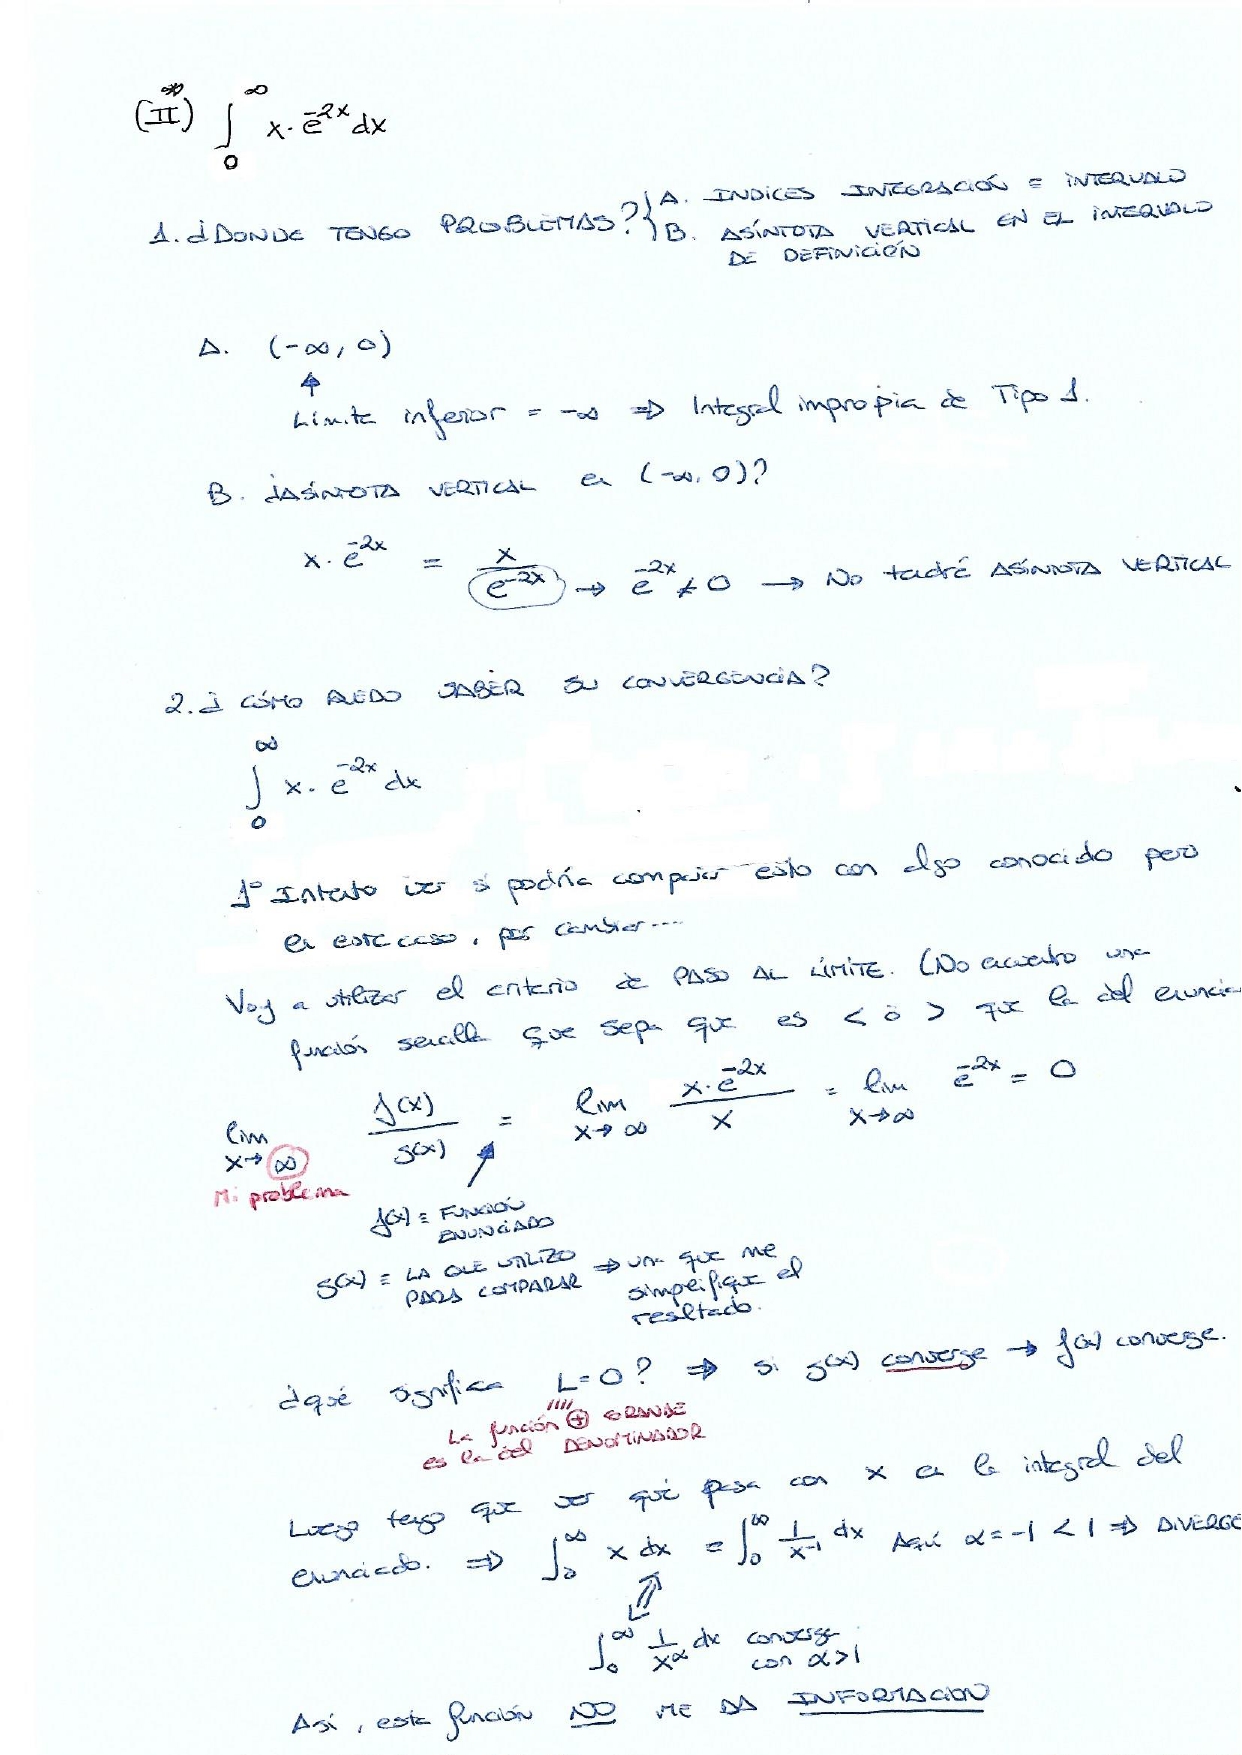 (II) ∫₀^∞ x · e^{-2x} dx
1. ¿DONDE TENGO PROBLEMAS? { A. INDICES INTEGRACIÓN = INTERVALO
B. ASÍNTOTA VERTICAL EN EL INTERVALO
DE DEFINICIÓN
A. (-∞, 0)
↑
Límite inferior = -∞ ⇒ Integral impropia de Tipo 1.
B. ¿ASÍNTOTA VERTICAL en (-∞, 0)?
x · e^{-2x} = x / e^{-2x} → e^{-2x} ≠ 0 → No tendré ASÍNTOTA VERTICAL
2. ¿CÓMO PUEDO SABER SU CONVERGENCIA?
∫₀^∞ x · e^{-2x} dx
1º Intento ver si podría comparar esto con algo conocido pero
en este caso, por cambiar....
Voy a utilizar el criterio de PASO AL LÍMITE. (No encuentro una
función sencilla que sepa que es < ó > que la del enuncia
lim_{x→∞} f(x)/g(x) = lim_{x→∞} x · e^{-2x} / x = lim_{x→∞} e^{-2x} = 0
Mi problema
f(x) ≡ FUNCIÓN
ENUNCIADO
g(x) ≡ LA QUE UTILIZO
PARA COMPARAR ⇒ una que me
simplifique el
resultado.
¿qué significa L=0? ⇒ si g(x) converge → f(x) converge.
La función ⊕ GRANDE
es la del DENOMINADOR
Luego tengo que ver qué pasa con x en la integral del
enunciado. ⇒ ∫₀^∞ x dx = ∫₀^∞ 1/x^{-1} dx Aquí α = -1 < 1 ⇒ DIVERGE
∫₀^∞ 1/x^α dx converge
con α>1
Así, esta función NO ME DA INFORMACION